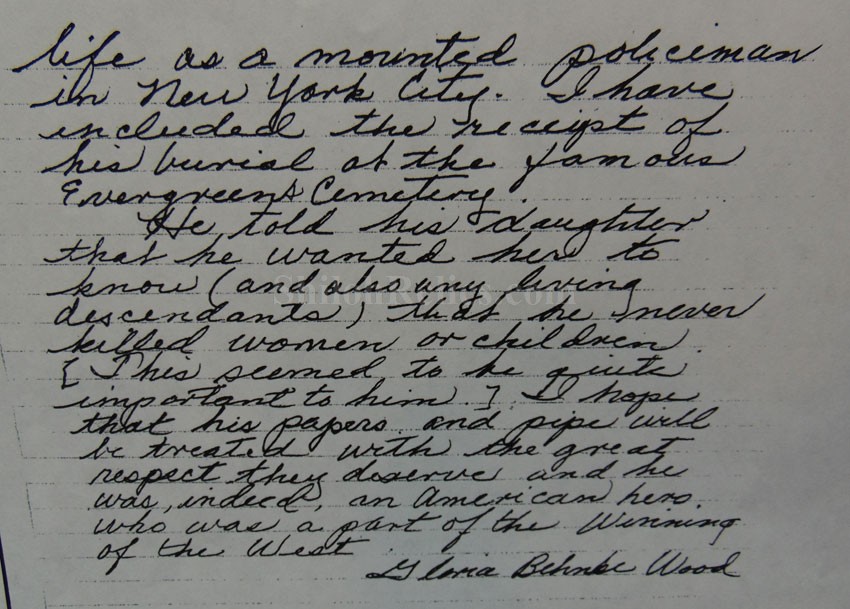 life as a mounted policeman
in New York City. I have
included the receipt of
his burial at the famous
Evergreens Cemetery.
He told his daughter
that he wanted her to
know (and also any living
ShilohRelics.com
descendants) that he never
killed women or children.
[This seemed to be quite
important to him.] I hope
that his papers and pipe will
be treated with the great
respect they deserve and he
was, indeed, an American hero
who was a part of the Winning
of the West.
Gloria Behnke Wood